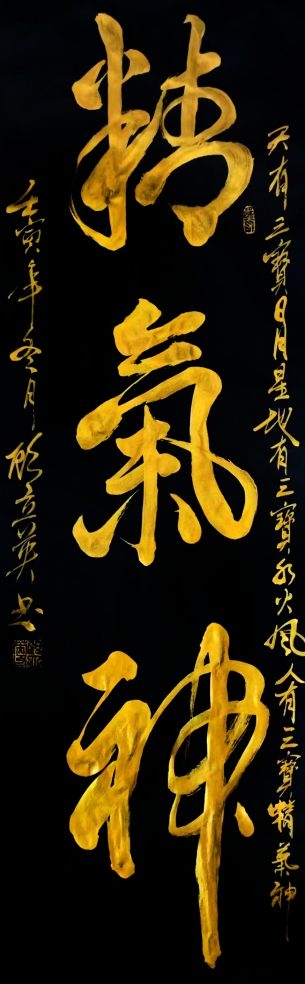 天有三寶日月星地有三寶水火風人有三寶精氣神
精氣神
壬寅年冬月立英书